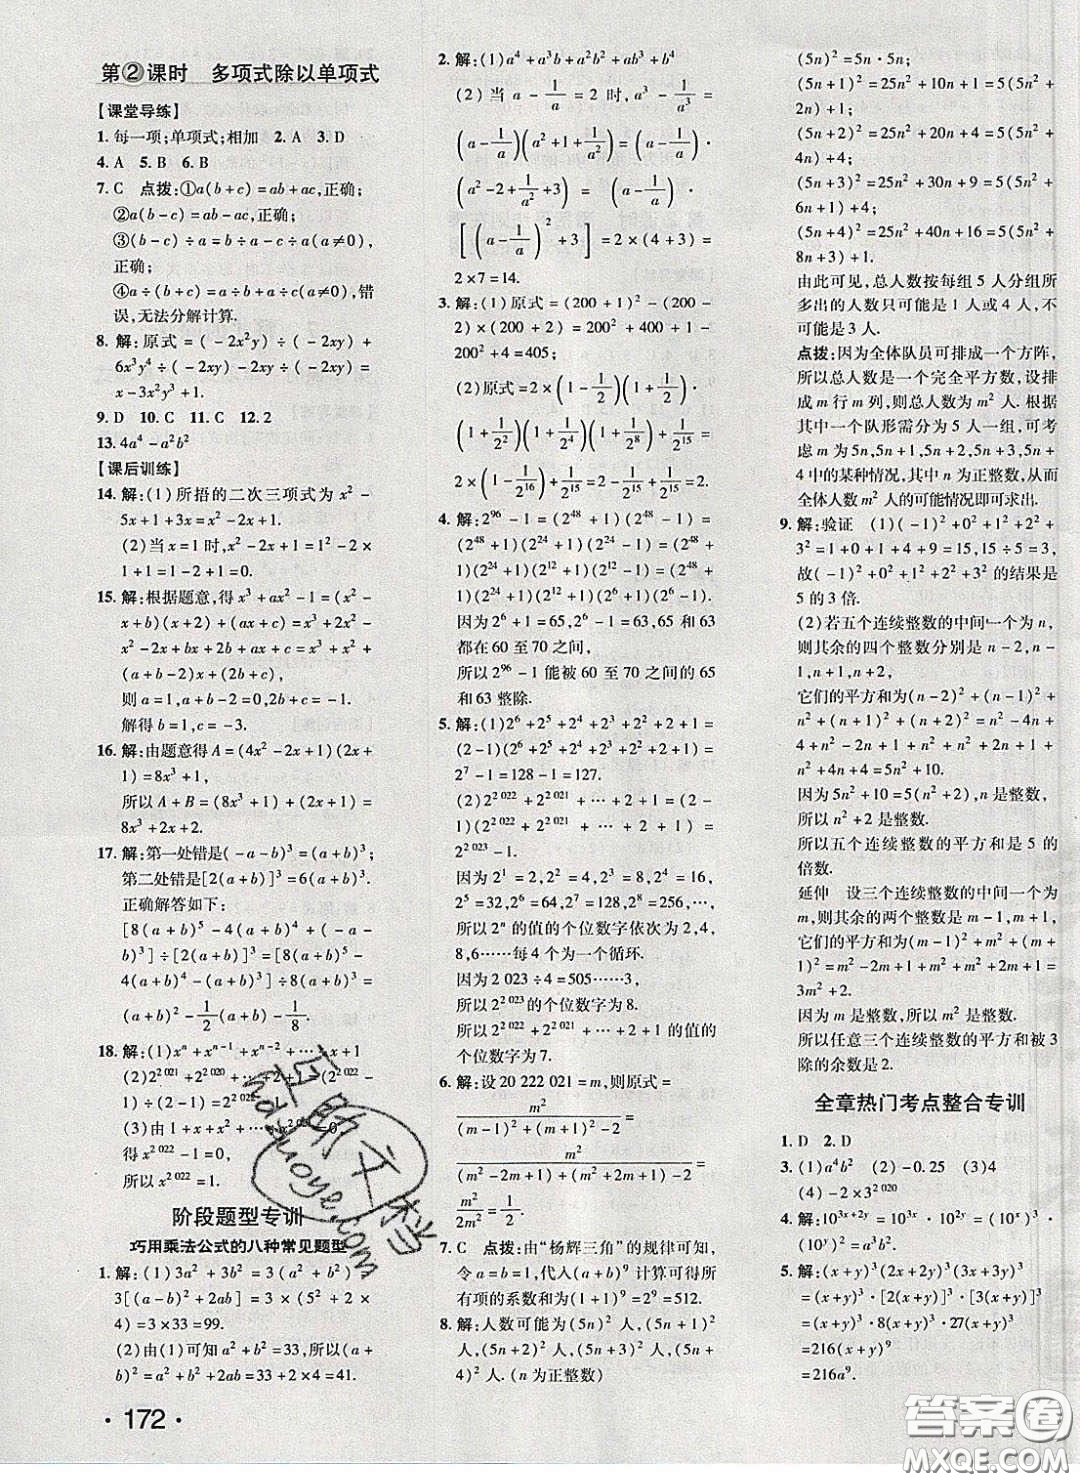 第②课时 多项式除以单项式
【课堂导练】
1. 每一项;单项式;相加 2. A 3. D
4. A 5. B 6. B
7. C 点拨:①a(b+c)=ab+ac,正确;
②a(b-c)=ab-ac,正确;
③(b-c)÷a=b÷a-c÷a(a≠0),
正确;
④a÷(b+c)=a÷b+a÷c(a≠0),错
误,无法分解计算.
8. 解:原式=(-2x²y)÷(-2xy)+
6x³y⁴÷(-2xy)-2xy÷(-2xy)=
x-3x²y³+1.
9. D 10. C 11. C 12. 2
13. 4a⁴-a²b²
【课后训练】
14. 解:(1)所捂的二次三项式为x²-
5x+1+3x=x²-2x+1.
(2)当x=1时,x²-2x+1=1²-2×
1+1=1-2+1=0.
15. 解:根据题意,得x³+ax²-1=(x²-
x+b)(x+2)+(x+c)=x³+2x²-
x²-2x+bx+2b+x+c=x³+x²+
(a+b-2)x+(2b+c),
则a,a+b-2=0,2b+c=-1.
解得b=1,c=-3.
16. 解:由题意得A=(4x²-2x+1)(2x+
1)=8x³+1,
所以A+B=(8x³+1)+(2x+1)=
8x³+2x+2.
17. 解:第一处错是(-a-b)³=(a+b)³;
第二处错是[2(a+b)]³=6(a+b)³.
正确解答如下:
[8(a+b)⁵-4(a+b)⁴+(-a-
b)³]÷[2(a+b)]³=[8(a+b)⁵-
4(a+b)⁴-(a+b)³]÷8(a+b)³=
(a+b)²-1/2(a+b)-1/8.
18. 解:(1)xⁿ+xⁿ⁻¹+xⁿ⁻²+…+x+1
(2)2²⁰²¹+2²⁰²⁰+
1)=2²⁰²²-1.
(3)由(x-1)
得x²⁰²²-1=0,
所以x²⁰²²=1.
阶段题型专训
巧用乘法公式的八种常见题型
1. 解:(1)3a²+3b²=3(a²+b²)=
3[(a-b)²+2ab]=3×(5²+2×
4)=3×33=99.
(2)由(1)可知a²+b²=33,所以(a+
b)²=a²+b²+2ab=33+2×4=41.
· 172 ·
2. 解:(1)a⁴+a³b+a²b²+ab³+b⁴
(2)当a-1/a=2时,a³-1/a³=
(a-1/a)(a²+1+1/a²)=
(a-1/a)·
(a²-2+1/a²+3)=(a-1/a)·
[(a-1/a)²+3]=2×(4+3)=
2×7=14.
3. 解:(1)原式=(200+1)²-(200-
1)×(200+1)+200+2=200²+
2×200+1-(200²-1)+200+2…
(2)原式=2×(1-1/2)(1+1/2)·
(1+1/2²)(1+1/2⁴)(1+1/2⁸)+1/2¹⁵=
2×(1-1/2¹⁶)+1/2¹⁵=2-1/2¹⁵+1/2¹⁵=2.
4. 解:2⁹⁶-1=(2⁴⁸+1)(2⁴⁸-1)=
(2⁴⁸+1)(2²⁴+1)(2²⁴-1)=(2⁴⁸+
1)(2²⁴+1)(2¹²+1)(2¹²-1)=(2⁴⁸+
1)(2²⁴+1)(2¹²+1)(2⁶+1)(2⁶-1).
因为2⁶+1=65,2⁶-1=63,65和63
都在60至70之间,
所以2⁹⁶-1能被60至70之间的65
和63整除.
5. 解:(1)2⁶+2⁵+2⁴+2³+2²+2+1=
(2-1)(2⁶+2⁵+2⁴+2³+2²+2+1)=
2⁷-1=128-1=127.
(2)2²⁰²²+2²⁰²¹+…+2+1=
(2-1)(2²⁰²²+2²⁰²¹+…+2+1)=
2²⁰²³-1.
因为2¹=2,2²=4,2³=8,2⁴=16,
2⁵=32,2⁶=64,2⁷=128,2⁸=256,…,
所以2ⁿ的值的个位数字依次为2,4,
8,6……每4个为一个循环.
因为2 023÷4=505……3,
所以2²⁰²³的个位数字为8.
所以2²⁰²²+2²⁰²¹+…+2+1的值的
个位数字为7.
6. 解:设20 222 021=m,则原式=
m²/((m-1)²+(m+1)²-2)=
m²/((m²-2m+1)+(m²+2m+1)-2)=
m²/2m²=1/2.
7. C 点拨:由“杨辉三角”的规律可知,
令a=b=1,代入(a+b)⁹计算可得所
有项的系数和为(1+1)⁹=2⁹=512.
8. 解:人数可能为(5n)²人,(5n+1)²
人,(5n+2)²人,(5n+3)²人,(5n+
4)²人.(n为正整数)
(5n)²=5n·5n;
(5n+1)²=25n²+10n+1=5(5n²+
2n)+1;
(5n+2)²=25n²+20n+4=5(5n²+
4n)+4;
(5n+3)²=25n²+30n+9=5(5n²+
6n+1)+4;
(5n+4)²=25n²+40n+16=5(5n²+
8n+3)+1.
由此可见,总人数按每组5人分组所
多出的人数只可能是1人或4人,不
可能是3人.
点拨:因为全体队员可排成一个方阵,
所以总人数是一个完全平方数,设排
成m行m列,则总人数为m²人.根据
其中一个队形需分为5人一组,可考
虑m为5n,5n+1,5n+2,5n+3,5n+
4中的某种情况,其中n为正整数,从而
全体人数m²人的可能情况即可求出.
9. 解:验证 (1)(-1)²+0²+1²+2²+
3²=1+0+1+4+9=15,15÷5=3,
故(-1)²+0²+1²+2²+3²的结果是
5的3倍.
(2)若五个连续整数的中间一个为n,
则其余的四个整数分别是n-2,n-1,
n+1,n+2,
它们的平方和为(n-2)²+(n-1)²+
n²+(n+1)²+(n+2)²=n²-4n+
4+n²-2n+1+n²+n²+2n+1+n²+
4n+4=5n²+10.
因为5n²+10=5(n²+2),n是整数,
所以n²+2是整数.
所以五个连续整数的平方和是5的
倍数.
延伸 设三个连续整数的中间一个为
m,则其余的两个整数是m-1,m+1,
它们的平方和为(m-1)²+m²+(m+
1)²=m²-2m+1+m²+m²+2m+1=
3m²+2.
因为m是整数,所以m²是整数.
所以任意三个连续整数的平方和被3
除的余数是2.
全章热门考点整合专训
1. D 2. D
3. (1)a⁴b² (2)-0.25 (3)4
(4)-2×3²⁰²⁰
4. 解:10³ˣ⁺²ʸ=10³ˣ·10²ʸ=(10ˣ)³·
(10ʸ)²=a³b².
5. 解:(x+y)³(2x+2y)³(3x+3y)³
=(x+y)³·[2(x+y)]³·[3(x+y)]³
=(x+y)³·8(x+y)³·27(x+y)³
=216(x+y)⁹
=216a⁹.
答案圈
MXQE.COM